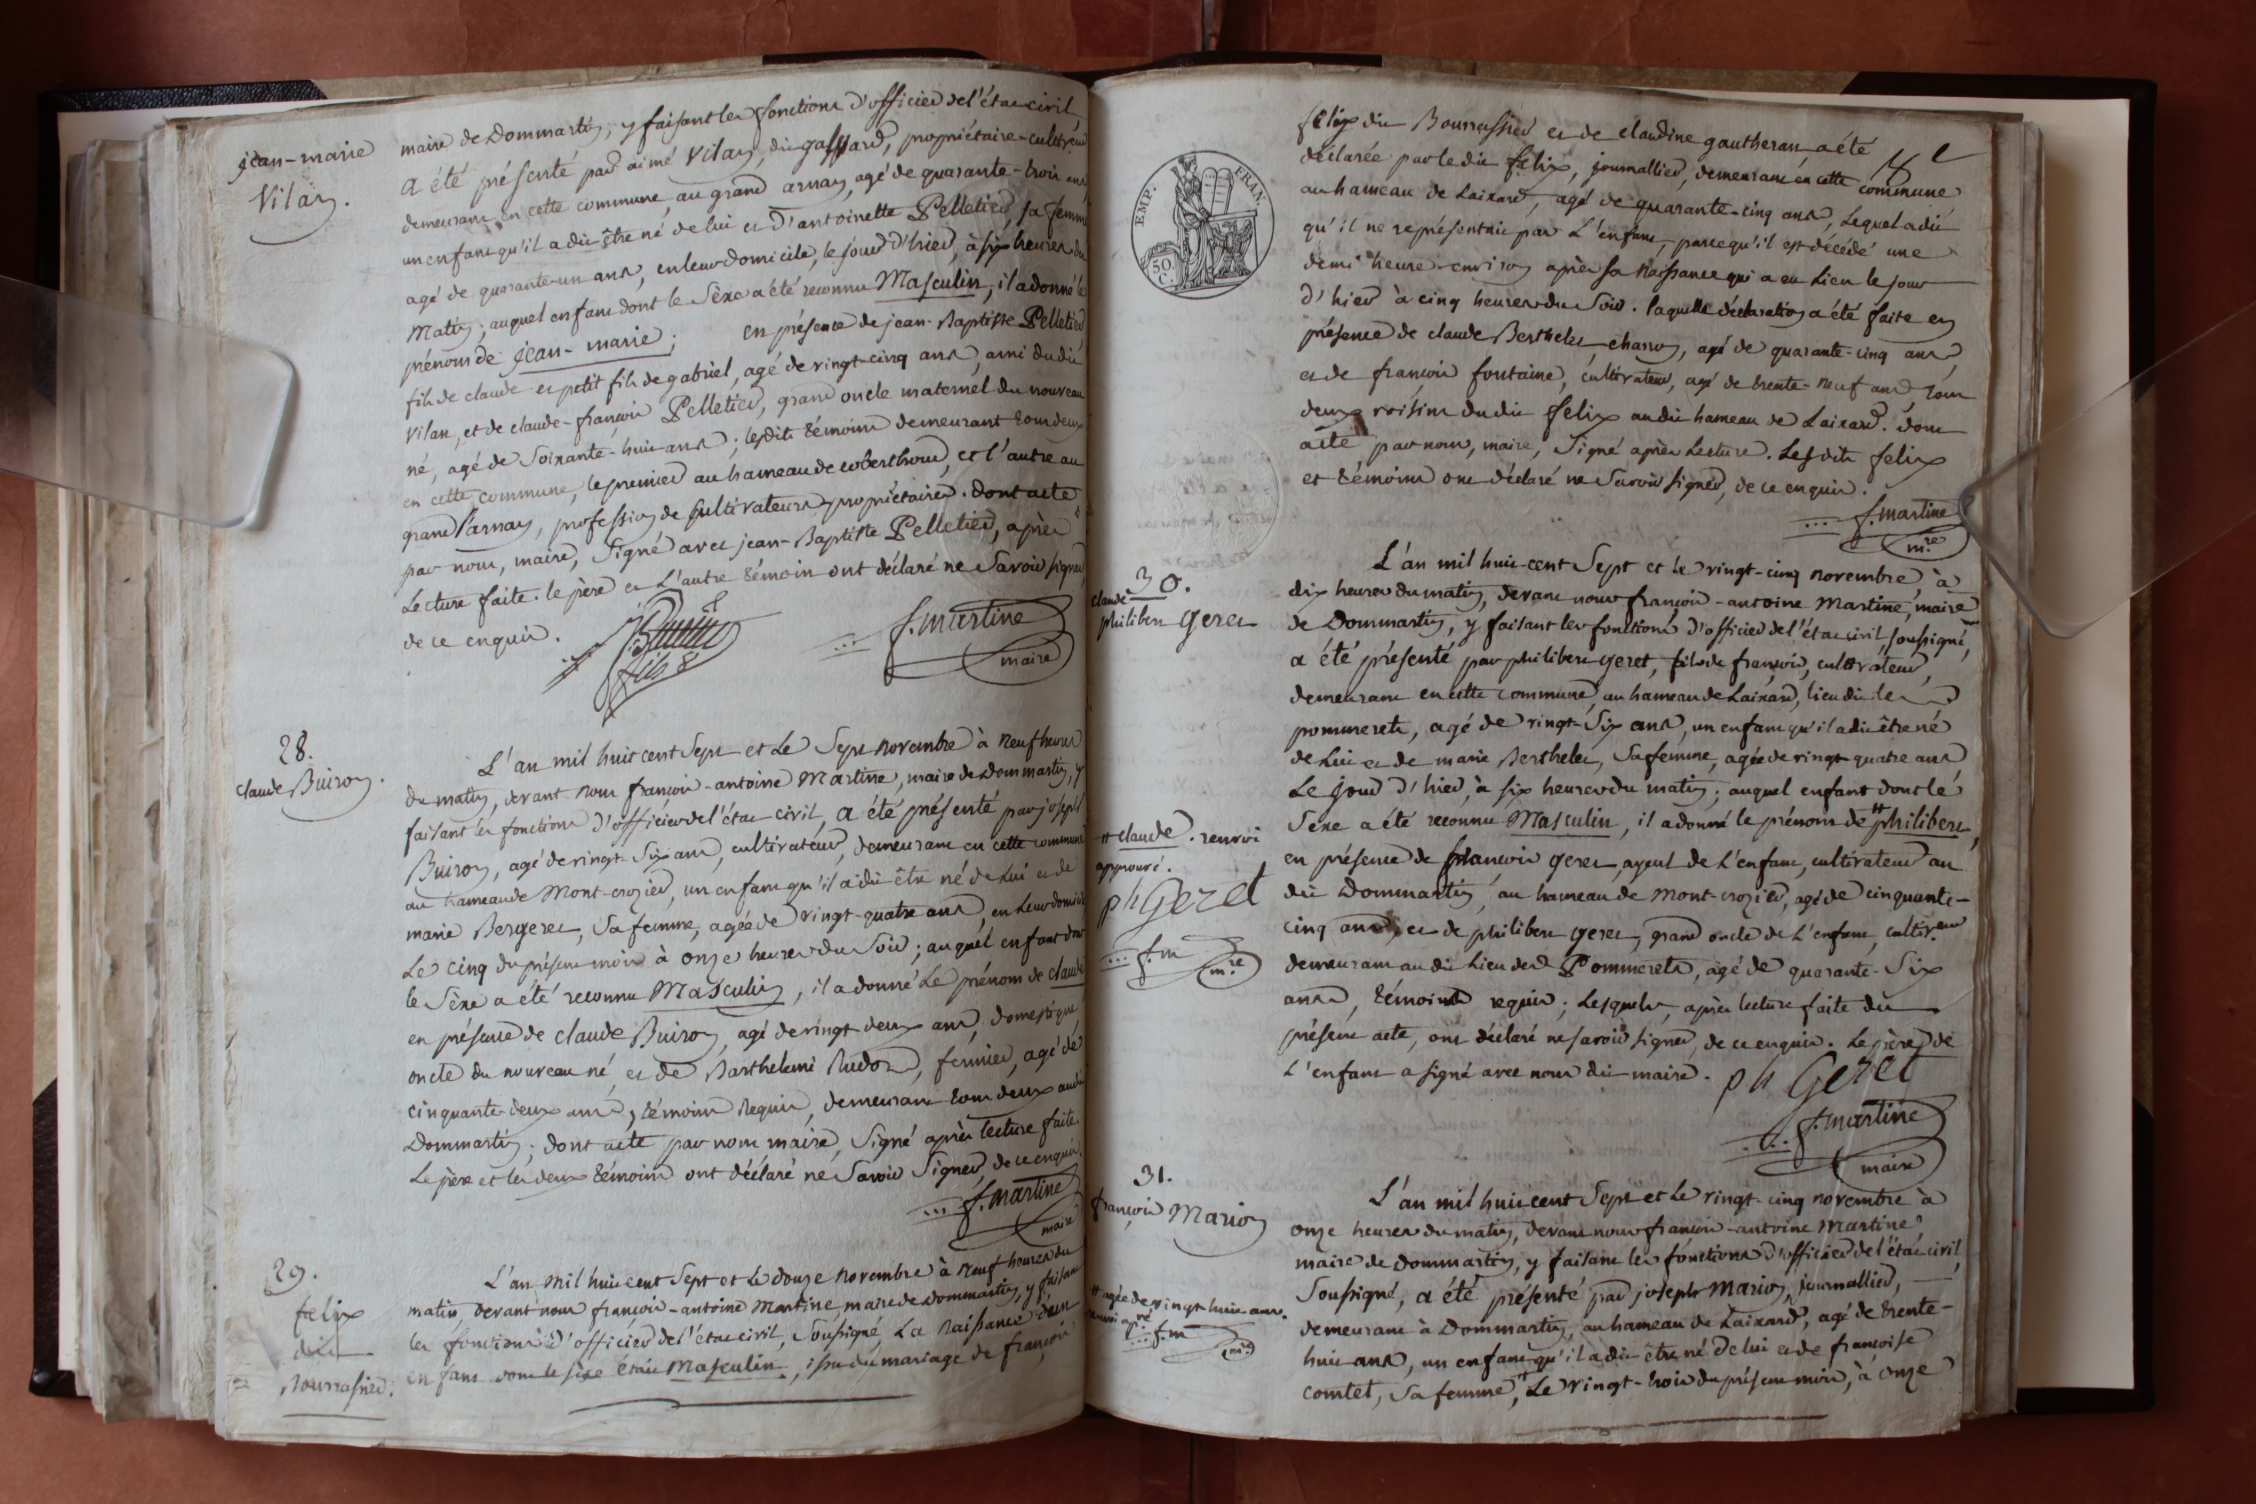 jean-marie
Vilan.
maire de Dommartin, y faisant les fonctions d'officier de l'état civil
a été présenté par aimé Vilan, dit gaspard, propriétaire-cultivateur
demeurant en cette commune, au grand arnan, agé de quarante-trois ans
un enfant qu'il a dit être né de lui et d'antoinette Pelletier sa femme
agé de quarante-un ans, en leur domicile, le jour d'hier, à six heures du
Matin; auquel enfant dont le Sèxe a été reconnu Masculin, il a donné le
prénom de jean-marie; en présence de jean-Baptiste Pelletier
fils de claude et petit fils de gabriel, agé de vingt-cinq ans, ami du dit
Vilan, et de claude-françois Pelletier, grand oncle maternel du nouveau
né, agé de Soixante-huit ans; lesdits témoins demeurant tous deux
en cette commune, le premier au hameau de coberthoud, et l'autre au
grand arnan, profession de Cultivateurs propriétaires. dont acte
par nous, maire, Signé avec jean-Baptiste Pelletier, après
Lecture faite. le père et L'autre témoin ont déclaré ne Savoir signer,
de ce enquis.
fils
f. martine
maire
28.
claude Buiron.
L'an mil huit cent Sept et Le Sept novembre à neuf heures
du matin, devant nous françois-antoine Martine, maire de Dommartin, y
faisant les fonctions d'officier de l'état civil, a été présenté par joseph
Buiron, agé de vingt-Six ans, cultivateur, demeurant en cette commune
au hameau de Mont-crozier, un enfant qu'il a dit être né de Lui et de
marie Bergeret, Sa femme, agée de vingt-quatre ans, en Leur domicile
Le cinq du présent mois à onze heures du Soir; auquel enfant dont
le Sèxe a été reconnu Masculin, il a donné Le prénom de claude
en présence de claude Buiron, agé de vingt deux ans, domestique,
oncle du nouveau né, et de Barthelemi Rudon, fermier, agé de
cinquante-deux ans, témoins Requis, demeurant tous deux audit
Dommartin; dont acte par nous maire, Signé après lecture faite.
Le père et les deux témoins ont déclaré ne Savoir Signer, de ce enquis.
f. martine
maire
29.
felix
dit
Bourrasier.
L'an mil huit cent Sept et Le douze novembre à neuf heures du
matin, devant nous françois-antoine Martine maire de Dommartin, y faisant
les fonctions d'officier de l'état civil, Soussigné, La Naissance d'un
enfant dont le sèxe étoit Masculin, issu du mariage de françois
EMP. FRAN.
50.
C.
felix dit Bourrassier et de claudine gautheran a été
déclarée par le dit felix, journallier, demeurant en cette commune
au hameau de Laixard, agé de quarante-cinq ans, Lequel a dit
qu'il ne représentoit pas L'enfant, parcequ'il est décédé une
demi heure environ après sa Naissance qui a eu Lieu le jour
d'hier à cinq heures du Soir. laquelle déclaration a été faite en
présence de claude Berthelet charron, agé de quarante-cinq ans
et de françois fontaine, cultivateur, agé de trente-neuf ans tous
deux voisins du dit felix au dit hameau de Laixard. dont
acte par nous, maire, Signé après Lecture. Lesdits felix
et témoins ont déclaré ne Savoir signer, de ce enquis.
f. martine
m.re
30.
claude
philibert Geret
L'an mil huit-cent Sept et le vingt-cinq novembre, à
dix heures du matin, devant nous françois-antoine Martine, maire
de Dommartin, y faisant les fonctions d'officier de l'état civil, soussigné,
a été présenté par philibert geret, fils de françois, cultivateur,
demeurant en cette commune, au hameau de Laixard, lieu dit les
pommerets, agé de vingt-Six ans, un enfant qu'il a dit être né
de Lui et de marie Berthelet, Sa femme, agée de vingt-quatre ans
Le jour d'hier, à six heures du matin; auquel enfant dont le
Sèxe a été reconnu Masculin, il a donné le prénom de # philibert,
en présence de françois geret, ayeul de L'enfant, cultivateur au
dit Dommartin, au hameau de mont-crozier, agé de cinquante-
cinq ans, et de philibert geret, grand oncle de L'enfant, cultiv.eur
demeurant au dit Lieu des Pommerets, agé de quarante-Six
ans, témoins requis; Lesquels, après lecture faite du
présent acte, ont déclaré ne savoir signer, de ce enquis. Le père de
L'enfant a signé avec nous dit maire.
ph Geret
f. martine
maire
# claude. renvoi
approuvé.
ph Geret
f. m
m.re
31.
françois Marion
L'an mil huit cent Sept et Le vingt-cinq novembre à
onze heures du matin, devant nous françois-antoine Martine
maire de Dommartin, y faisant les fonctions d'officier de l'état civil
Soussigné, a été présenté par joseph Marion, journallier,
demeurant à Dommartin, au hameau de Laixard, agé de trente-
huit ans, un enfant qu'il a dit être né de lui et de françoise
comtet, Sa femme #, Le vingt-trois du présent mois, à onze
# agée de vingt huit ans.
renvoi ap.vé
f. m
m.re